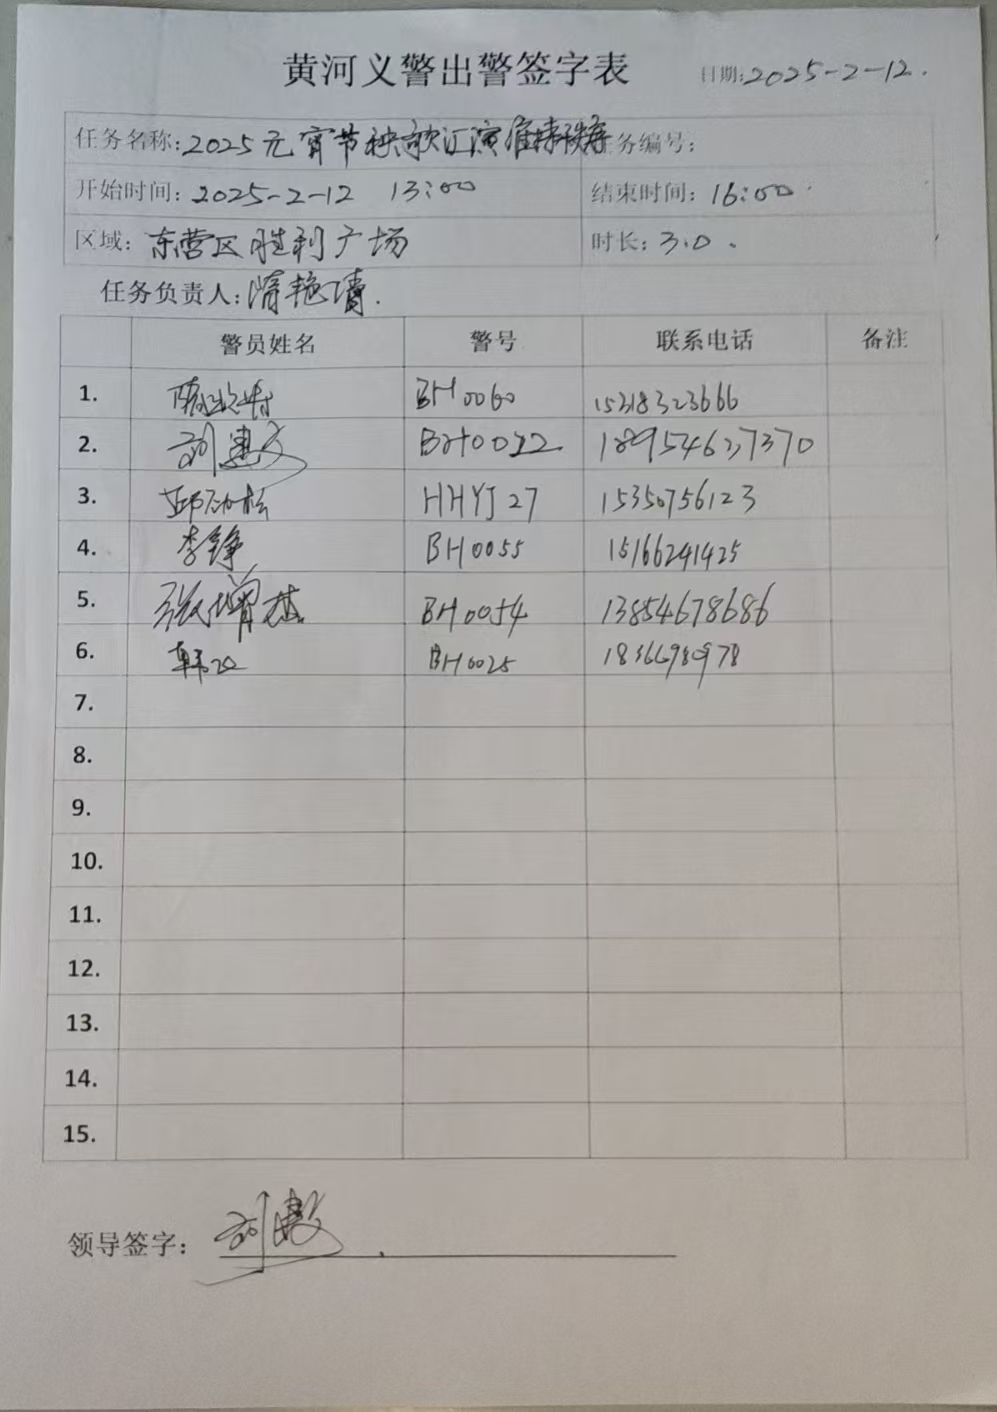 黄河义警出警签字表
日期:2025-2-12.
任务名称:2025元宵节秧歌汇演维持秩序 任务编号:
开始时间:2025-2-12 13:00 结束时间:16:00
区域:东营区胜利广场 时长:3.0.
任务负责人:隋艳清.
警员姓名 警号 联系电话 备注
1. BH0060 15318323666
2. 刘建文 BH0022 18954627370
3. 邱劲松 HHYJ27 15350756123
4. 李铮 BH0055 15166241425
5. 张增 BH0054 13854678686
6. 韩 BH0025 18366980978
7.
8.
9.
10.
11.
12.
13.
14.
15.
领导签字: 刘